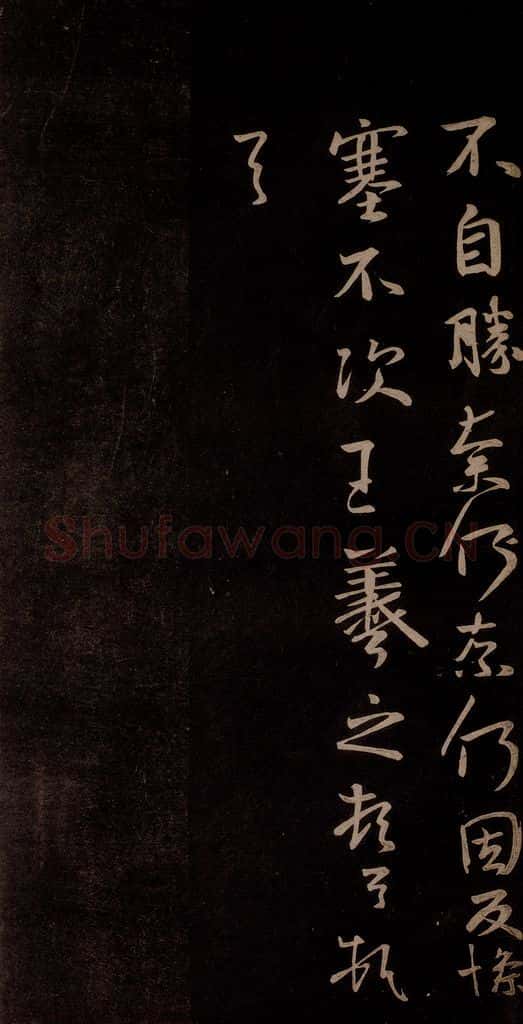 不自勝奈何奈何因反慘
塞不次王羲之頓首頓
首
Shufawang.CN